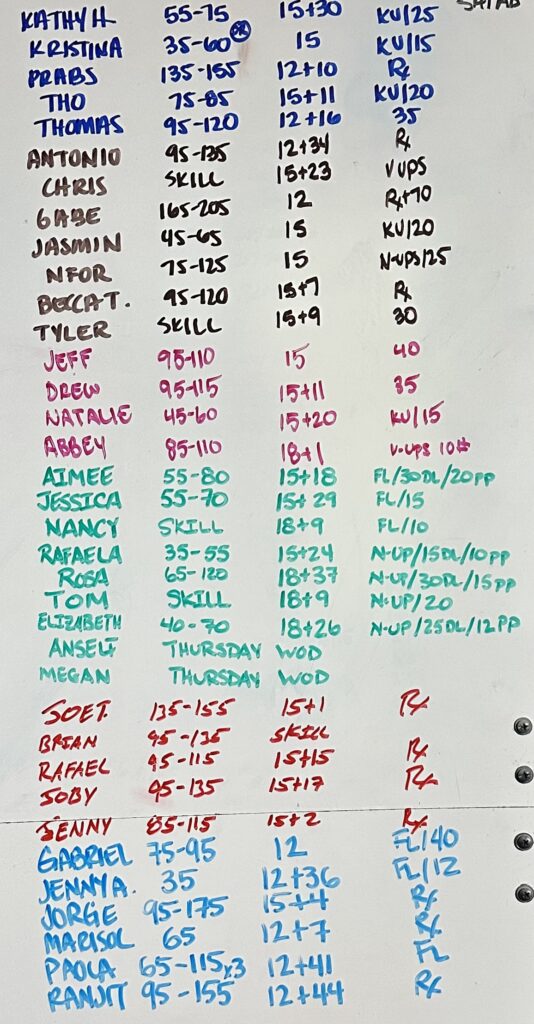 KATHY H 55-75 15+30 KU/25
KRISTINA 35-60 PR 15 KU/15
PRABS 135-155 12+10 Rx
THO 75-85 15+11 KU/20
THOMAS 95-120 12+16 35
ANTONIO 95-135 12+34 Rx
CHRIS SKILL 15+23 V UPS
GABE 165-205 12 Rx+70
JASMIN 45-65 15 KU/20
NFOR 75-125 15 N-UPS/25
BECCA T. 95-120 15+7 Rx
TYLER SKILL 15+9 30
JEFF 95-110 15 40
DREW 95-115 15+11 35
NATALIE 45-60 15+20 KU/15
ABBEY 85-110 18+1 V-UPS 10#
AIMEE 55-80 15+18 FL/30DL/20PP
JESSICA 55-70 15+29 FL/15
NANCY SKILL 18+9 FL/10
RAFAELA 35-55 15+24 N-UP/15DL/10PP
ROSA 65-120 18+37 N-UP/30DL/15PP
TOM SKILL 18+9 N-UP/20
ELIZABETH 40-70 18+26 N-UP/25DL/12PP
THURSDAY WOD
MEGAN THURSDAY WOD
JOE T. 135-155 15+1 Rx
BRIAN 95-135 SKILL
RAFAEL 95-115 15+15 Rx
SOBY 95-135 15+17 Rx
JENNY 85-115 15+2 Rx
GABRIEL 75-95 12 FL/40
JENNY A. 35 12+36 FL/12
JORGE 95-175 15+4 Rx
MARISOL 65 12+7 Rx
PAOLA 65-115x3 12+41 FL
RANJIT 95-155 12+44 Rx